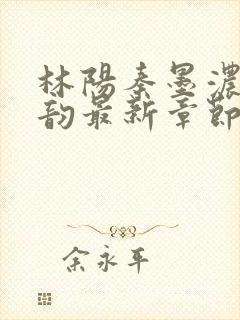 林陽秦墨濃
韵最新章節
余永平